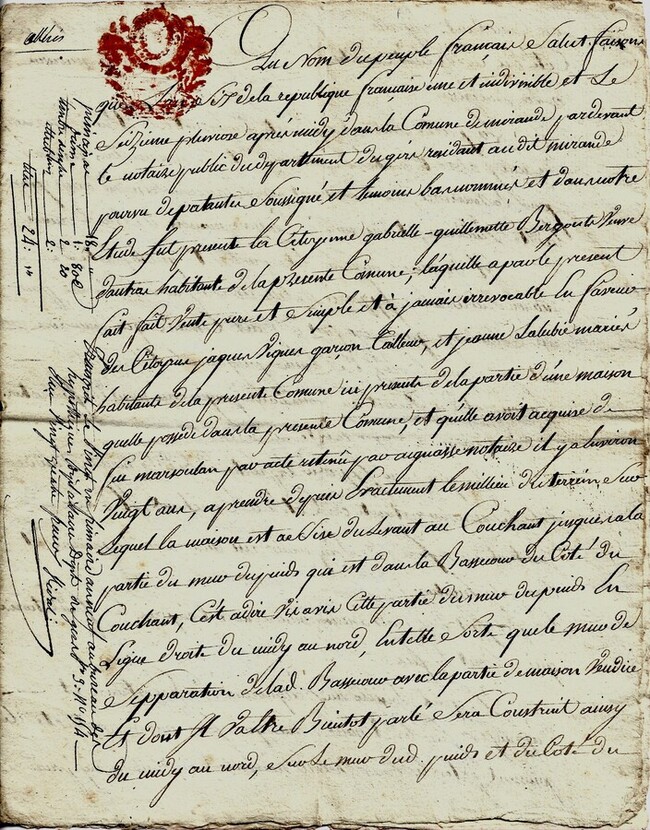 Au Nom du peuple français Salut. faisons
que L'an 5e de la republique francaise une et indivisible et Le
Seizieme pluviose après midy dans la Comune de mirande pardevant
le notaire public du departement du gers residant audit mirande
pourvu de patante Soussigné et temoins bas nommés et dans notre
Etude fut present la Citoyenne gabrielle guillemette Bergouts Veuve
dautras habitante de la presente Comune; laquille a par le present
fait Vente pure et Simple et à jamais irrevocable En faveur
des Citoyens jaques Vignes garçon tailleur, et jeanne Lalubie mariés
habitants de la present Comune ici presents de la partie d'une maison
quelle possede dans la presente Comune, et quille avoit acquise de
feu marsoulan par acte retenu par notaire il y a Environ
Vingt ans, a prendre depuis Exactement le milieu du terrein Sur
Lequel la maison est assise du Levant au Couchant jusques a la
partie du mur du puids qui est dans la Bassecour du Coté du
Couchant, C'est adire Vis avis Cette partie du mur du puids En
Ligne droite du midy au nord, En telle Sorte que le mur de
Separation de lad. Bassecour avec la partie de maison Vendüe
Et dont Il Va Etre Bientot parlé Sera Construit aussy
du midy au nord, Sur Le mur dud. puids et du Coté du
principal 18
2 20
2:
24: